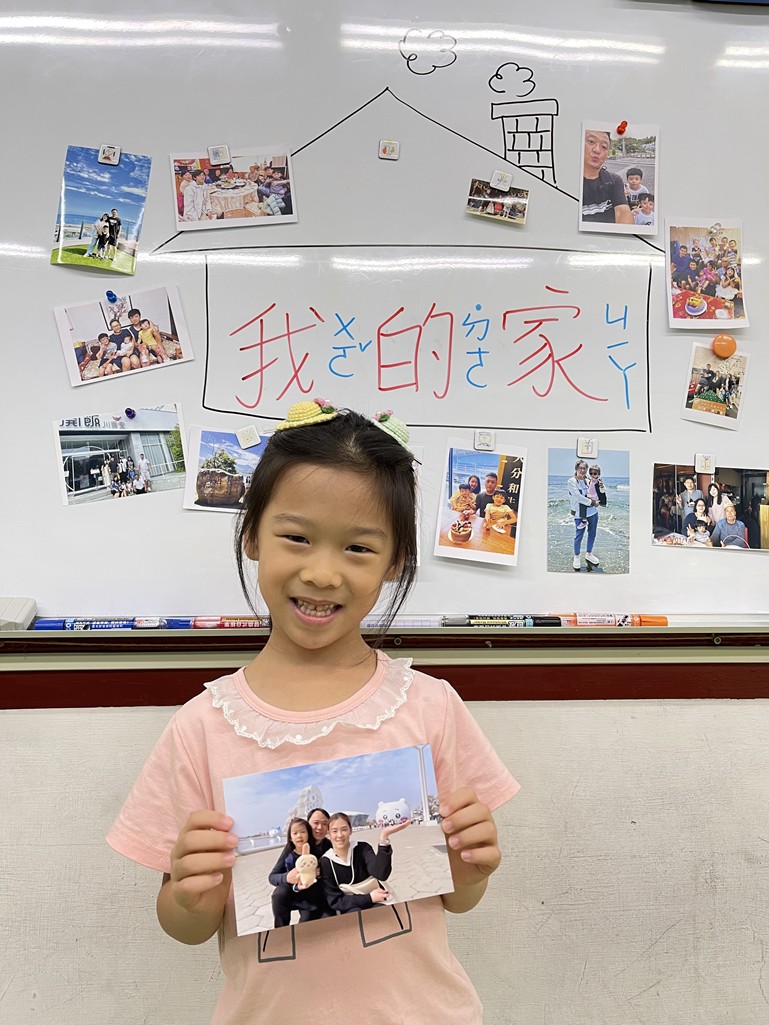 我ㄨㄛˇ的˙ㄉㄜ家ㄐㄧㄚ
分和